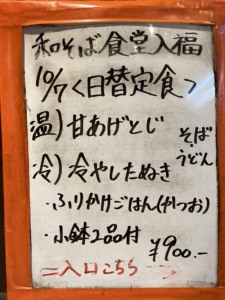 和そば食堂入福
10/7<日替定食>
温)甘あげとじ
そば
・
うどん
冷)冷やしたぬき
・ふりかけごはん(かつお)
・小鉢2品付
¥900.-
=入口こちら→